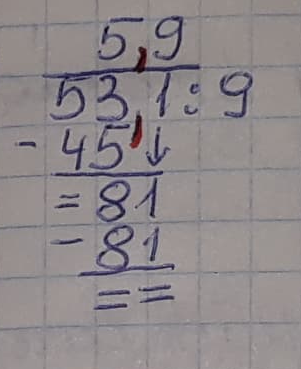 5,9
53,1:9
- 45 ↓
= 81
- 81
= =